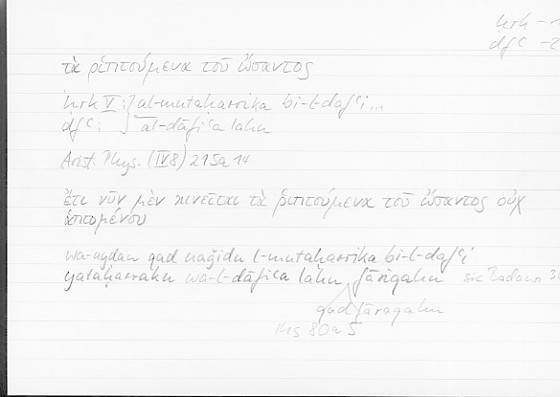 ḥrk – 1
dfʿ – 2
τὰ ῥιπτούμενα τοῦ ὤσαντος
ḥrk V : al-mutaḥarrika bi-l-dafʿi ...
dfʿ : al-dāfiʿa lahu
Arist. Phys. (IV 8) 215a 14
ἔτι νῦν μὲν κινεῖται τὰ ῥιπτούμενα τοῦ ὤσαντος οὐχ
ἁπτομένου
wa-ayḍan qad naǧidu l-mutaḥarrika bi-l-dafʿi
yataḥarraku wa-l-dāfiʿa lahu fāriqahu sic Badawi
qad fāraqahu
Hs 80a 5